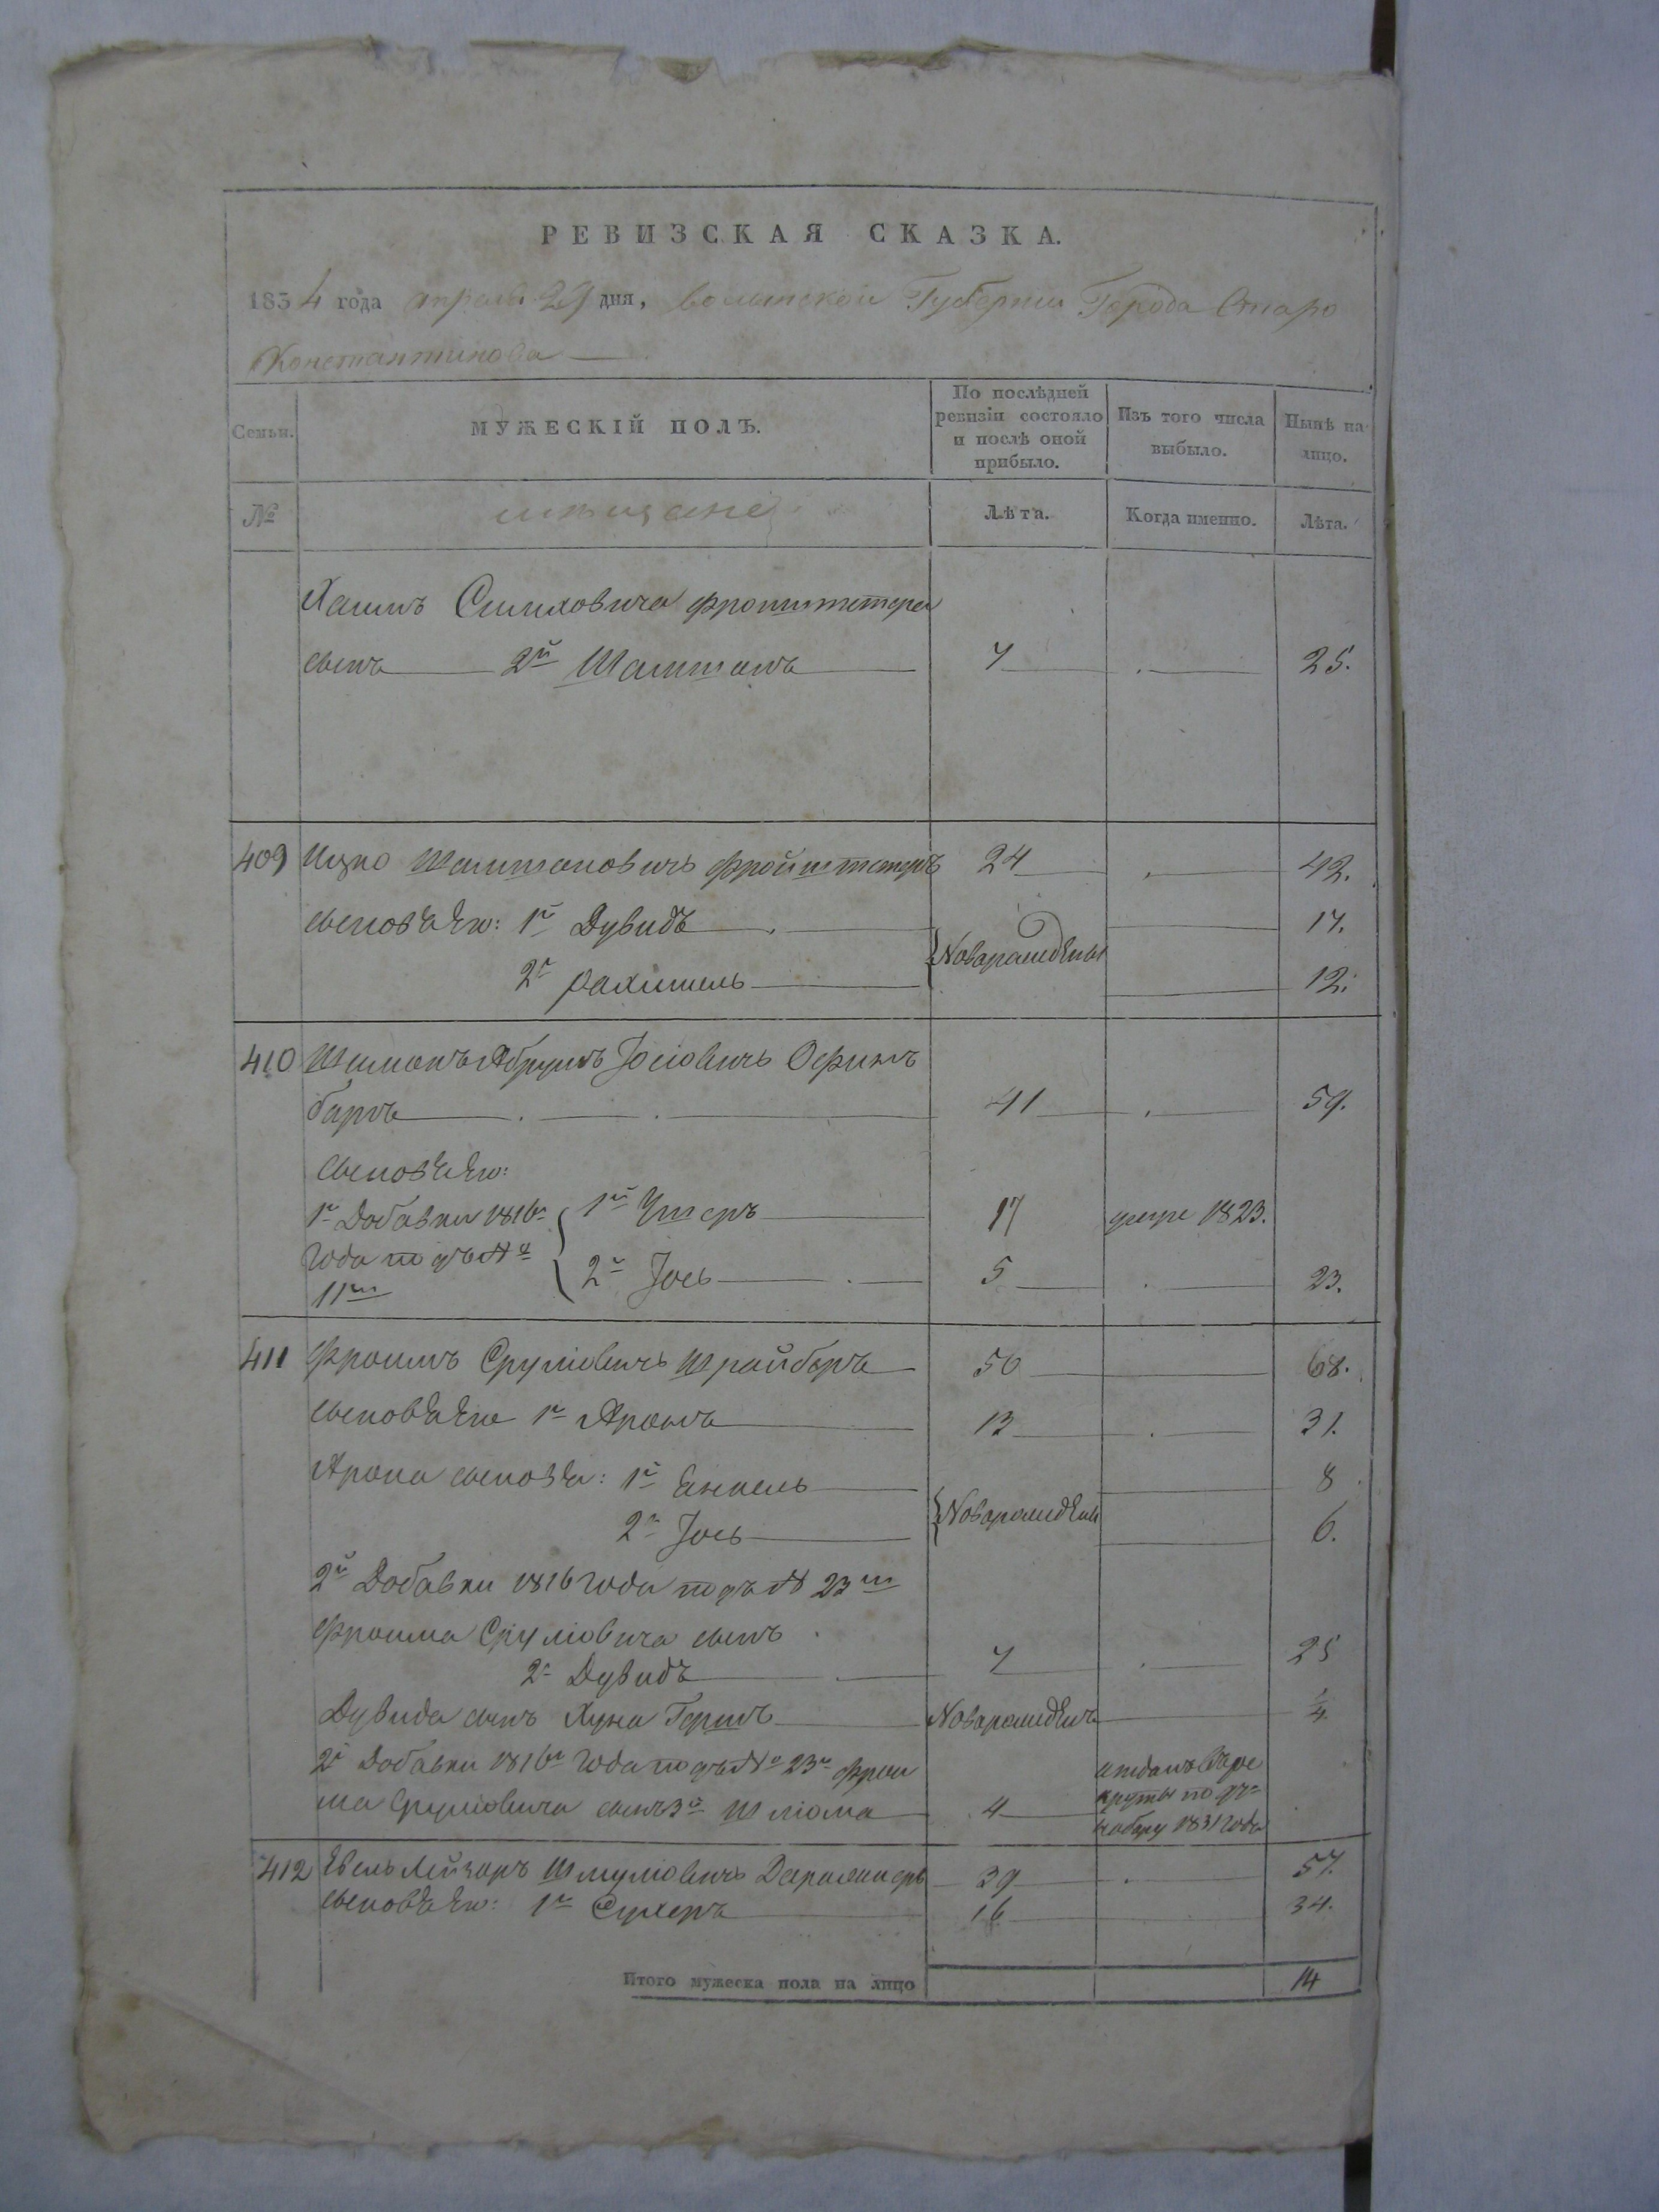 РЕВИЗСКАЯ СКАЗКА.
1834 года апреля 29 дня, волынской Губернии Города Старо
Константинова
Семьи.
МУЖЕСКІЙ ПОЛЪ.
По послѣдней
ревизіи состояло
и послѣ оной
прибыло.
Изъ того числа
выбыло.
Нынѣ на
лицо.
№
мѣщане
Лѣта.
Когда именно.
Лѣта.
Хаимъ фроиштетера
сынъ 2й Шаптанъ 7 25.
409 Ицко Шаптоновичъ фройштетеръ 24 42.
сыновья Его: 1й Дувидъ 17.
Новорожденны
2й Рахмиель 12.
410 Шимонъ Абрумъ Іосіовичъ
баръ 41 59.
сыновья Его:
1я Добавки 1816го 1й Ушеръ 17 умре 1823.
года подъ №
2й Іось 5 23.
11м
411 Фроимъ Сруліовичъ Шрайберъ 50 68.
сыновья Его 1й Аронъ 13 31.
Арона сыновья: 1й Енкель 8
Новорожденны
2й Іось 6.
2й Добавки 1816 года подъ № 23м
Фроима Сруліовича сынъ
2й Дувидъ 7 25
Дувида сынъ Хуна Гершъ Новорожденъ 1/4
2й Добавки 1816го года подъ № 23м Фрои
ма Сруліовича сынъ 3й Шліома 4
отданъ въ ре
круты по
набору 1831 года
412 Евель Лейзоръ Шмуліовичъ 39 57.
сыновья Его: 1й Сухеръ 16 34.
Итого мужеска пола на лицо 14